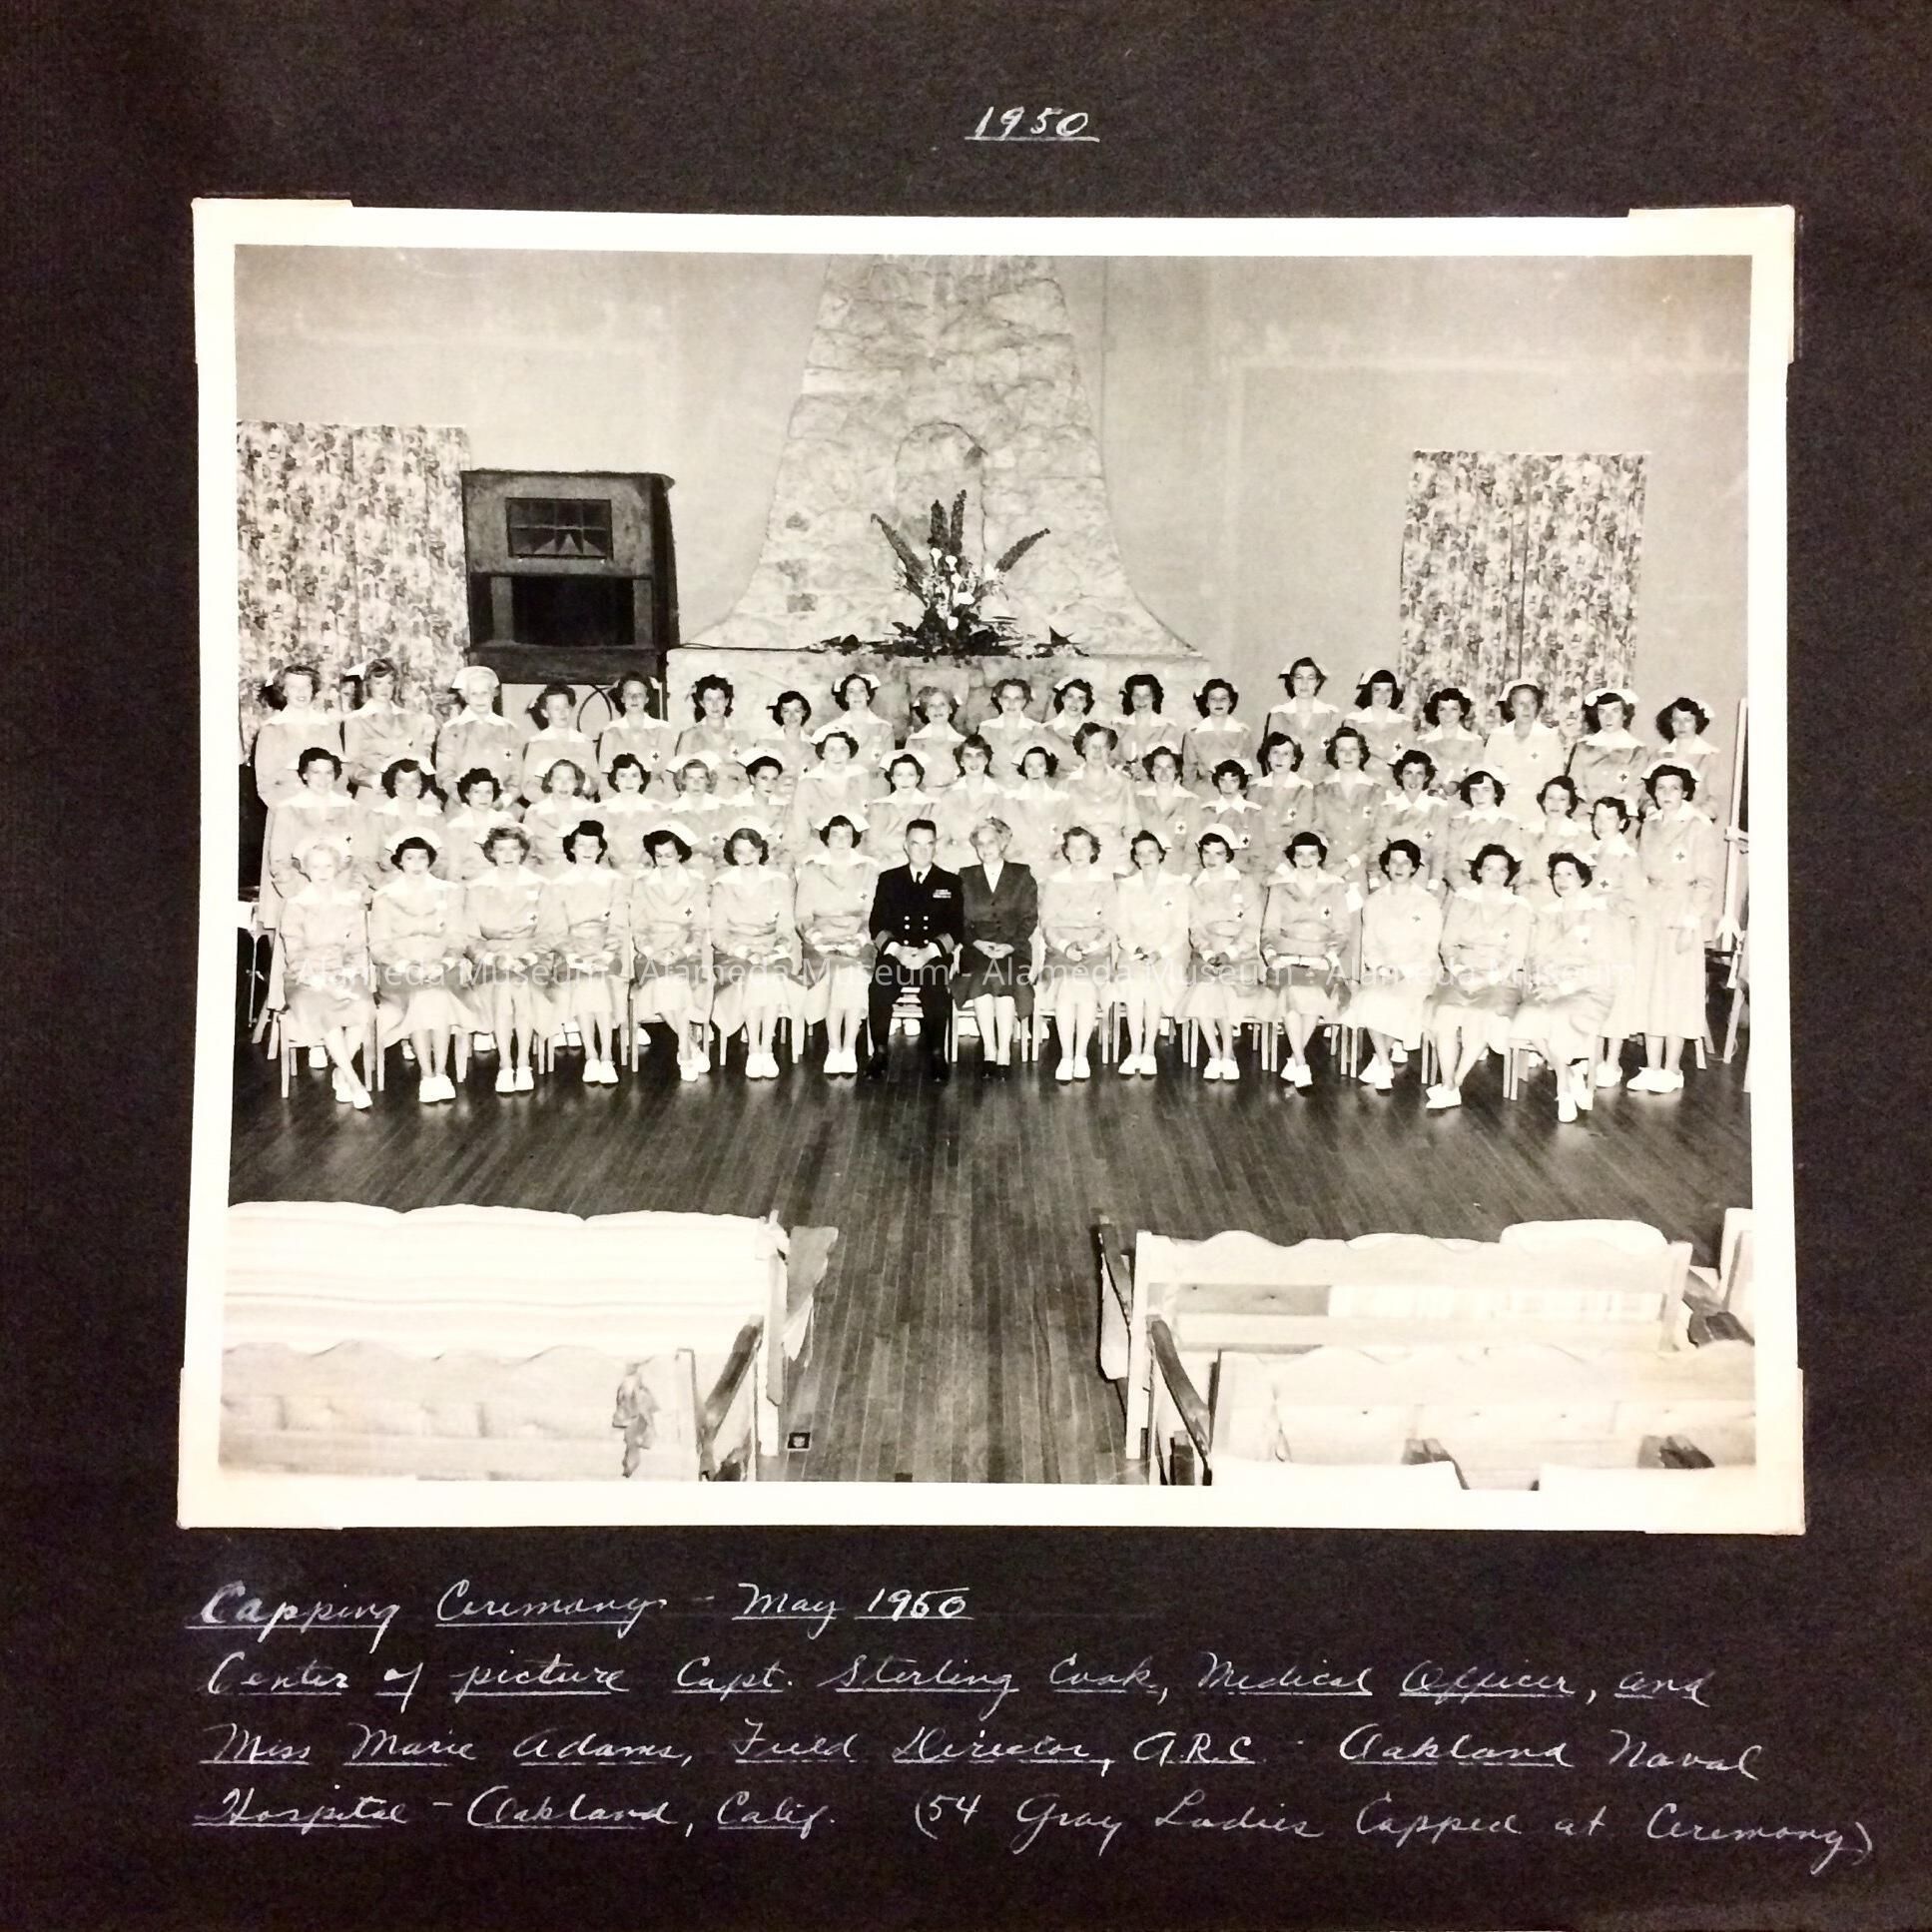 1950
Alameda Museum - Alameda Museum - Alameda Museum - Alameda Museum
Capping Ceremony - May 1950
Center of picture Capt. Sterling Cook, Medical Officer, and
Miss Marie Adams, Field Director, A.R.C. - Oakland Naval
Hospital - Oakland, Calif. (54 Gray Ladies Capped at Ceremony)